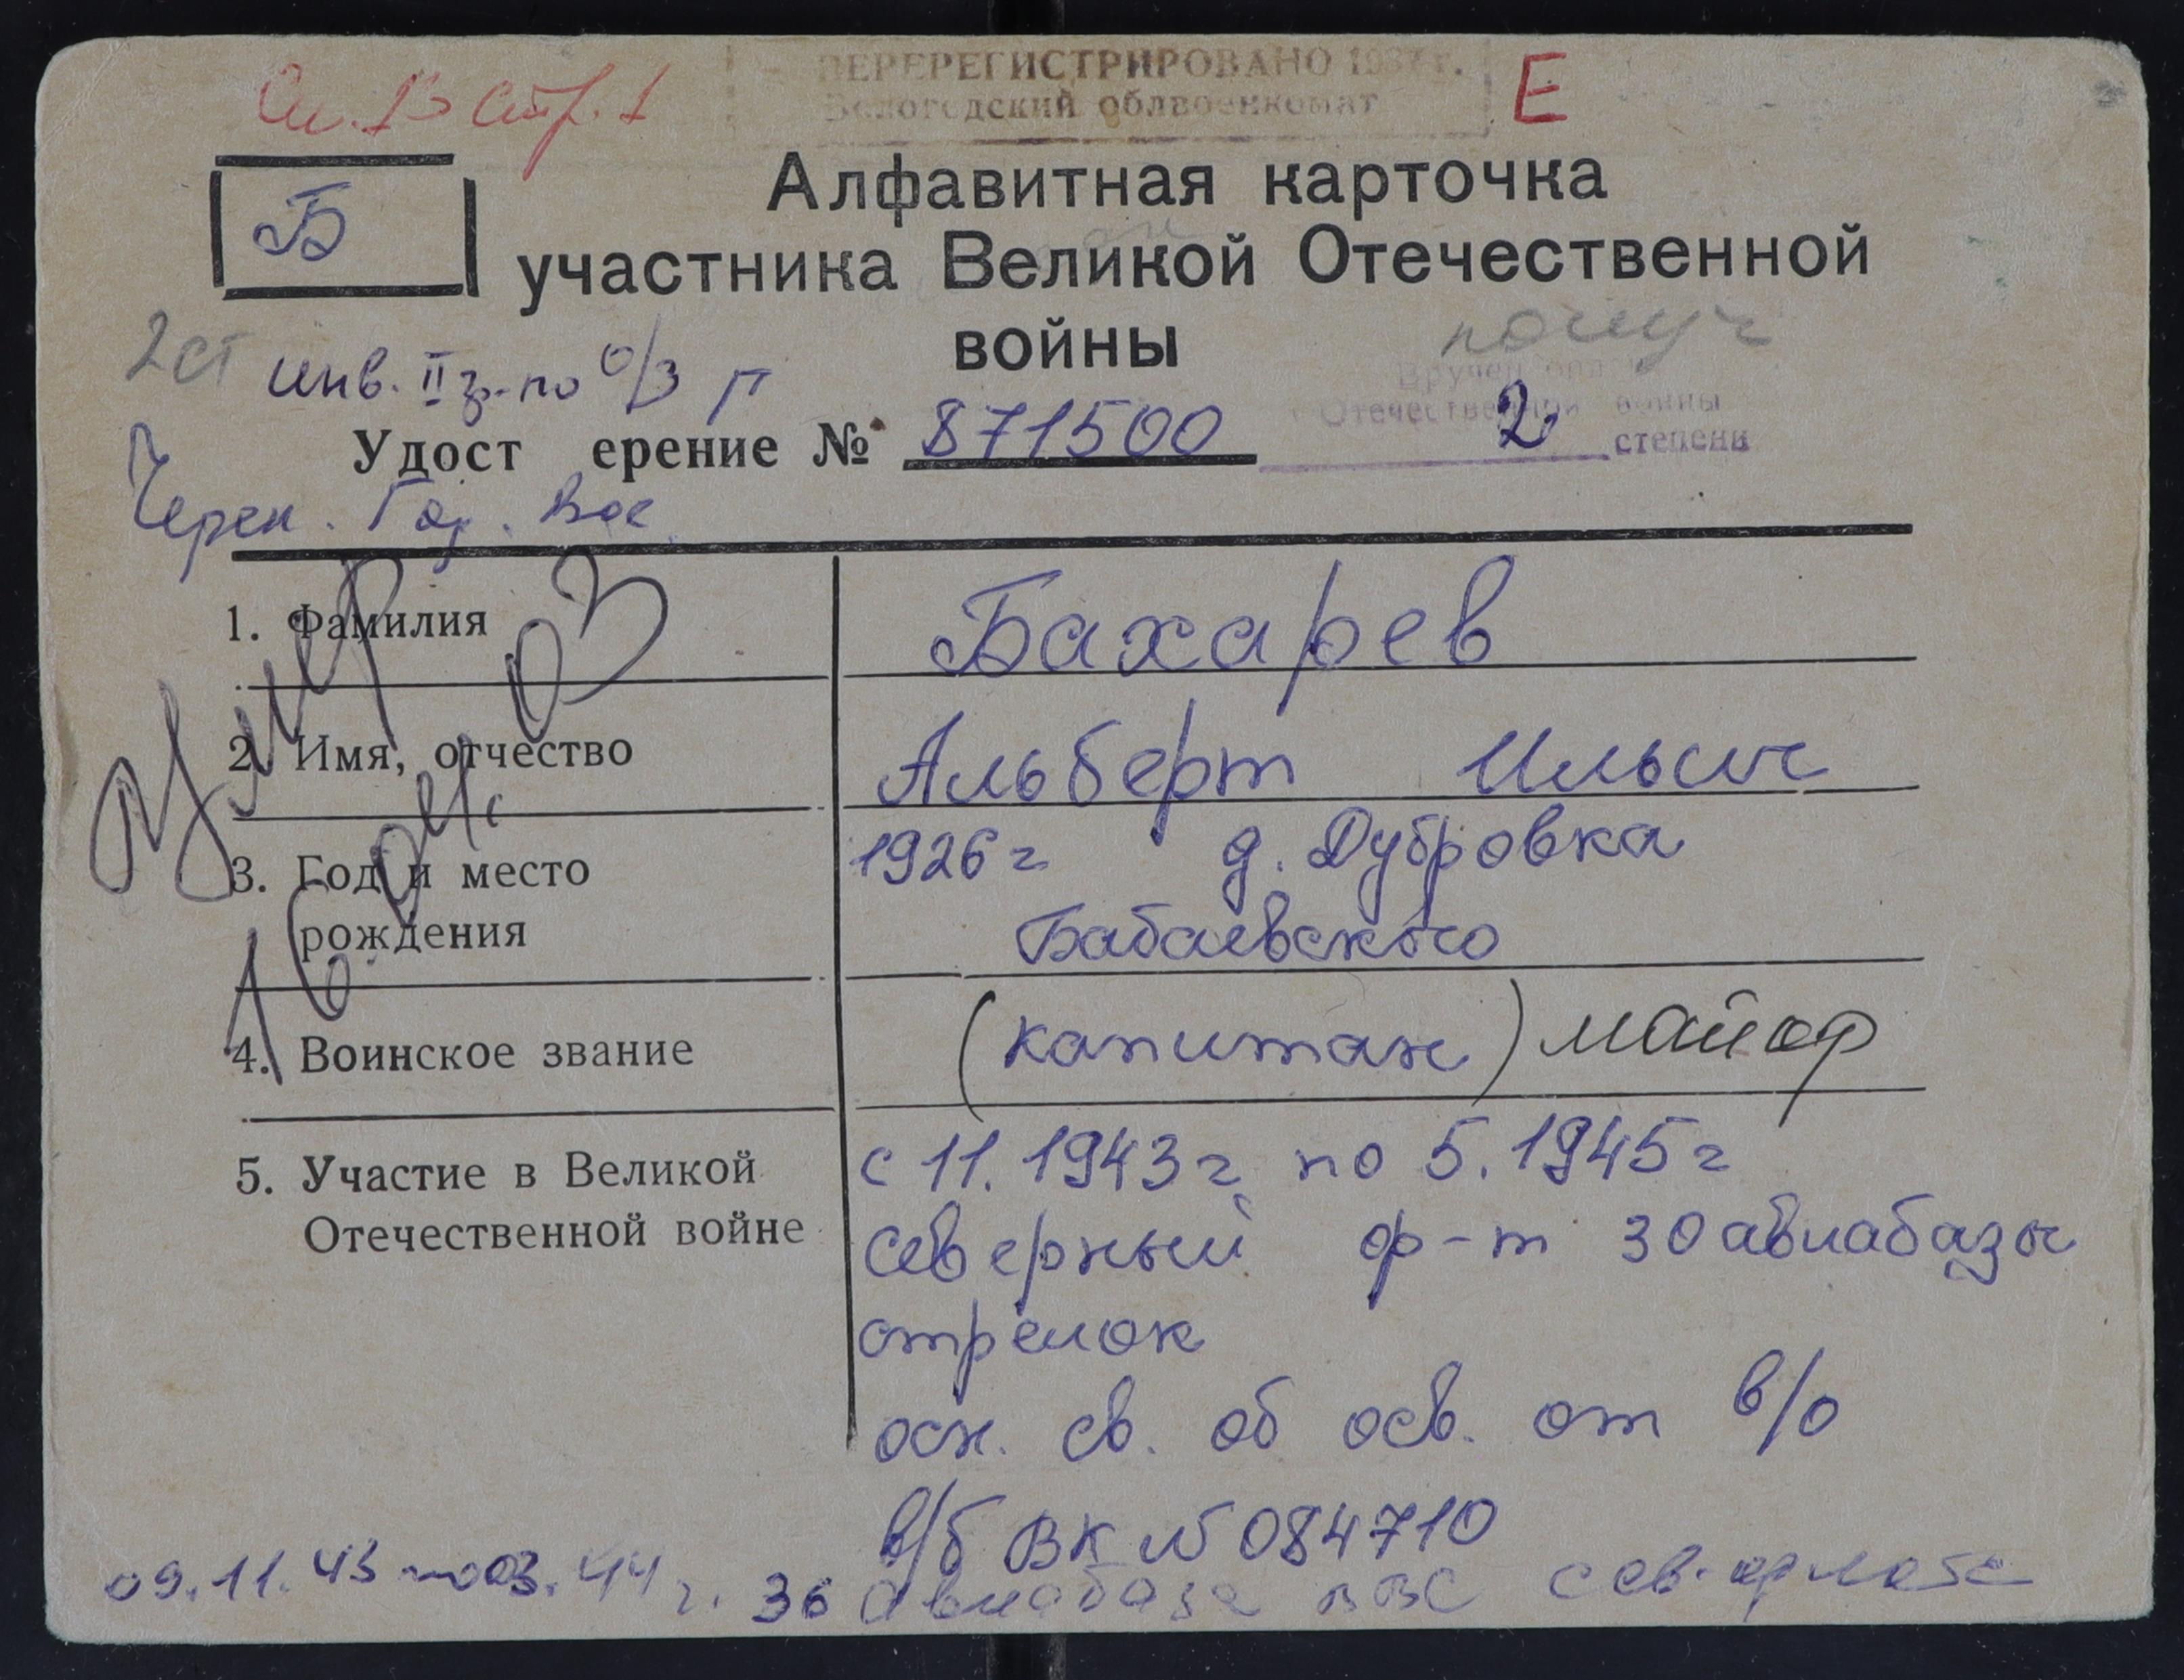 ПЕРЕРЕГИСТРИРОВАНО 1987 г.
Вологодский облвоенкомат
Е
Б
Алфавитная карточка
участника Великой Отечественной
войны
2 ст
инв. II гр. по о/з
получ
Вручен
Отечественной войны
2 степени
Удост ерение № 871500
Череп. Гор. Вое
1. Фамилия Бахарев
2. Имя, отчество Альберт Ильич
3. Год и место рождения 1926 г д. Дубровка
Бабаевского
4. Воинское звание (капитан) майор
5. Участие в Великой Отечественной войне с 11.1943 г по 5.1945 г
северный ф-т 30 авиабазы
стрелок
осн. св. об осв. от в/о
в/б ВК № 084710
09.11.43 по 03.44 г. 36 авиабаза ВВС сев. флота
Умер
03